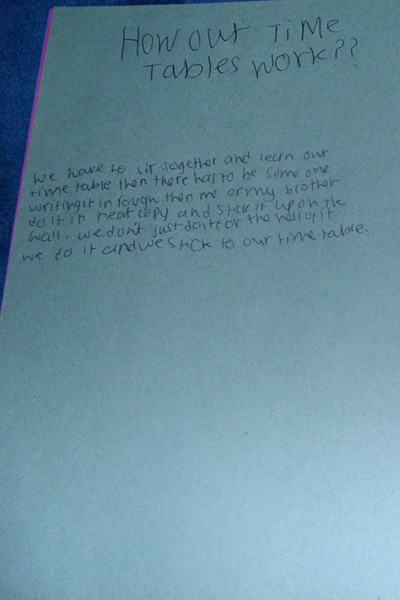 How our Time
Tables work??
we have to sit together and learn our
time table then there has to be some one
writing it in rough then me or my brother
do it in neat copy and stick it up on the
wall. we dont just do it for the hell of it.
we do it and we stick to our time table.